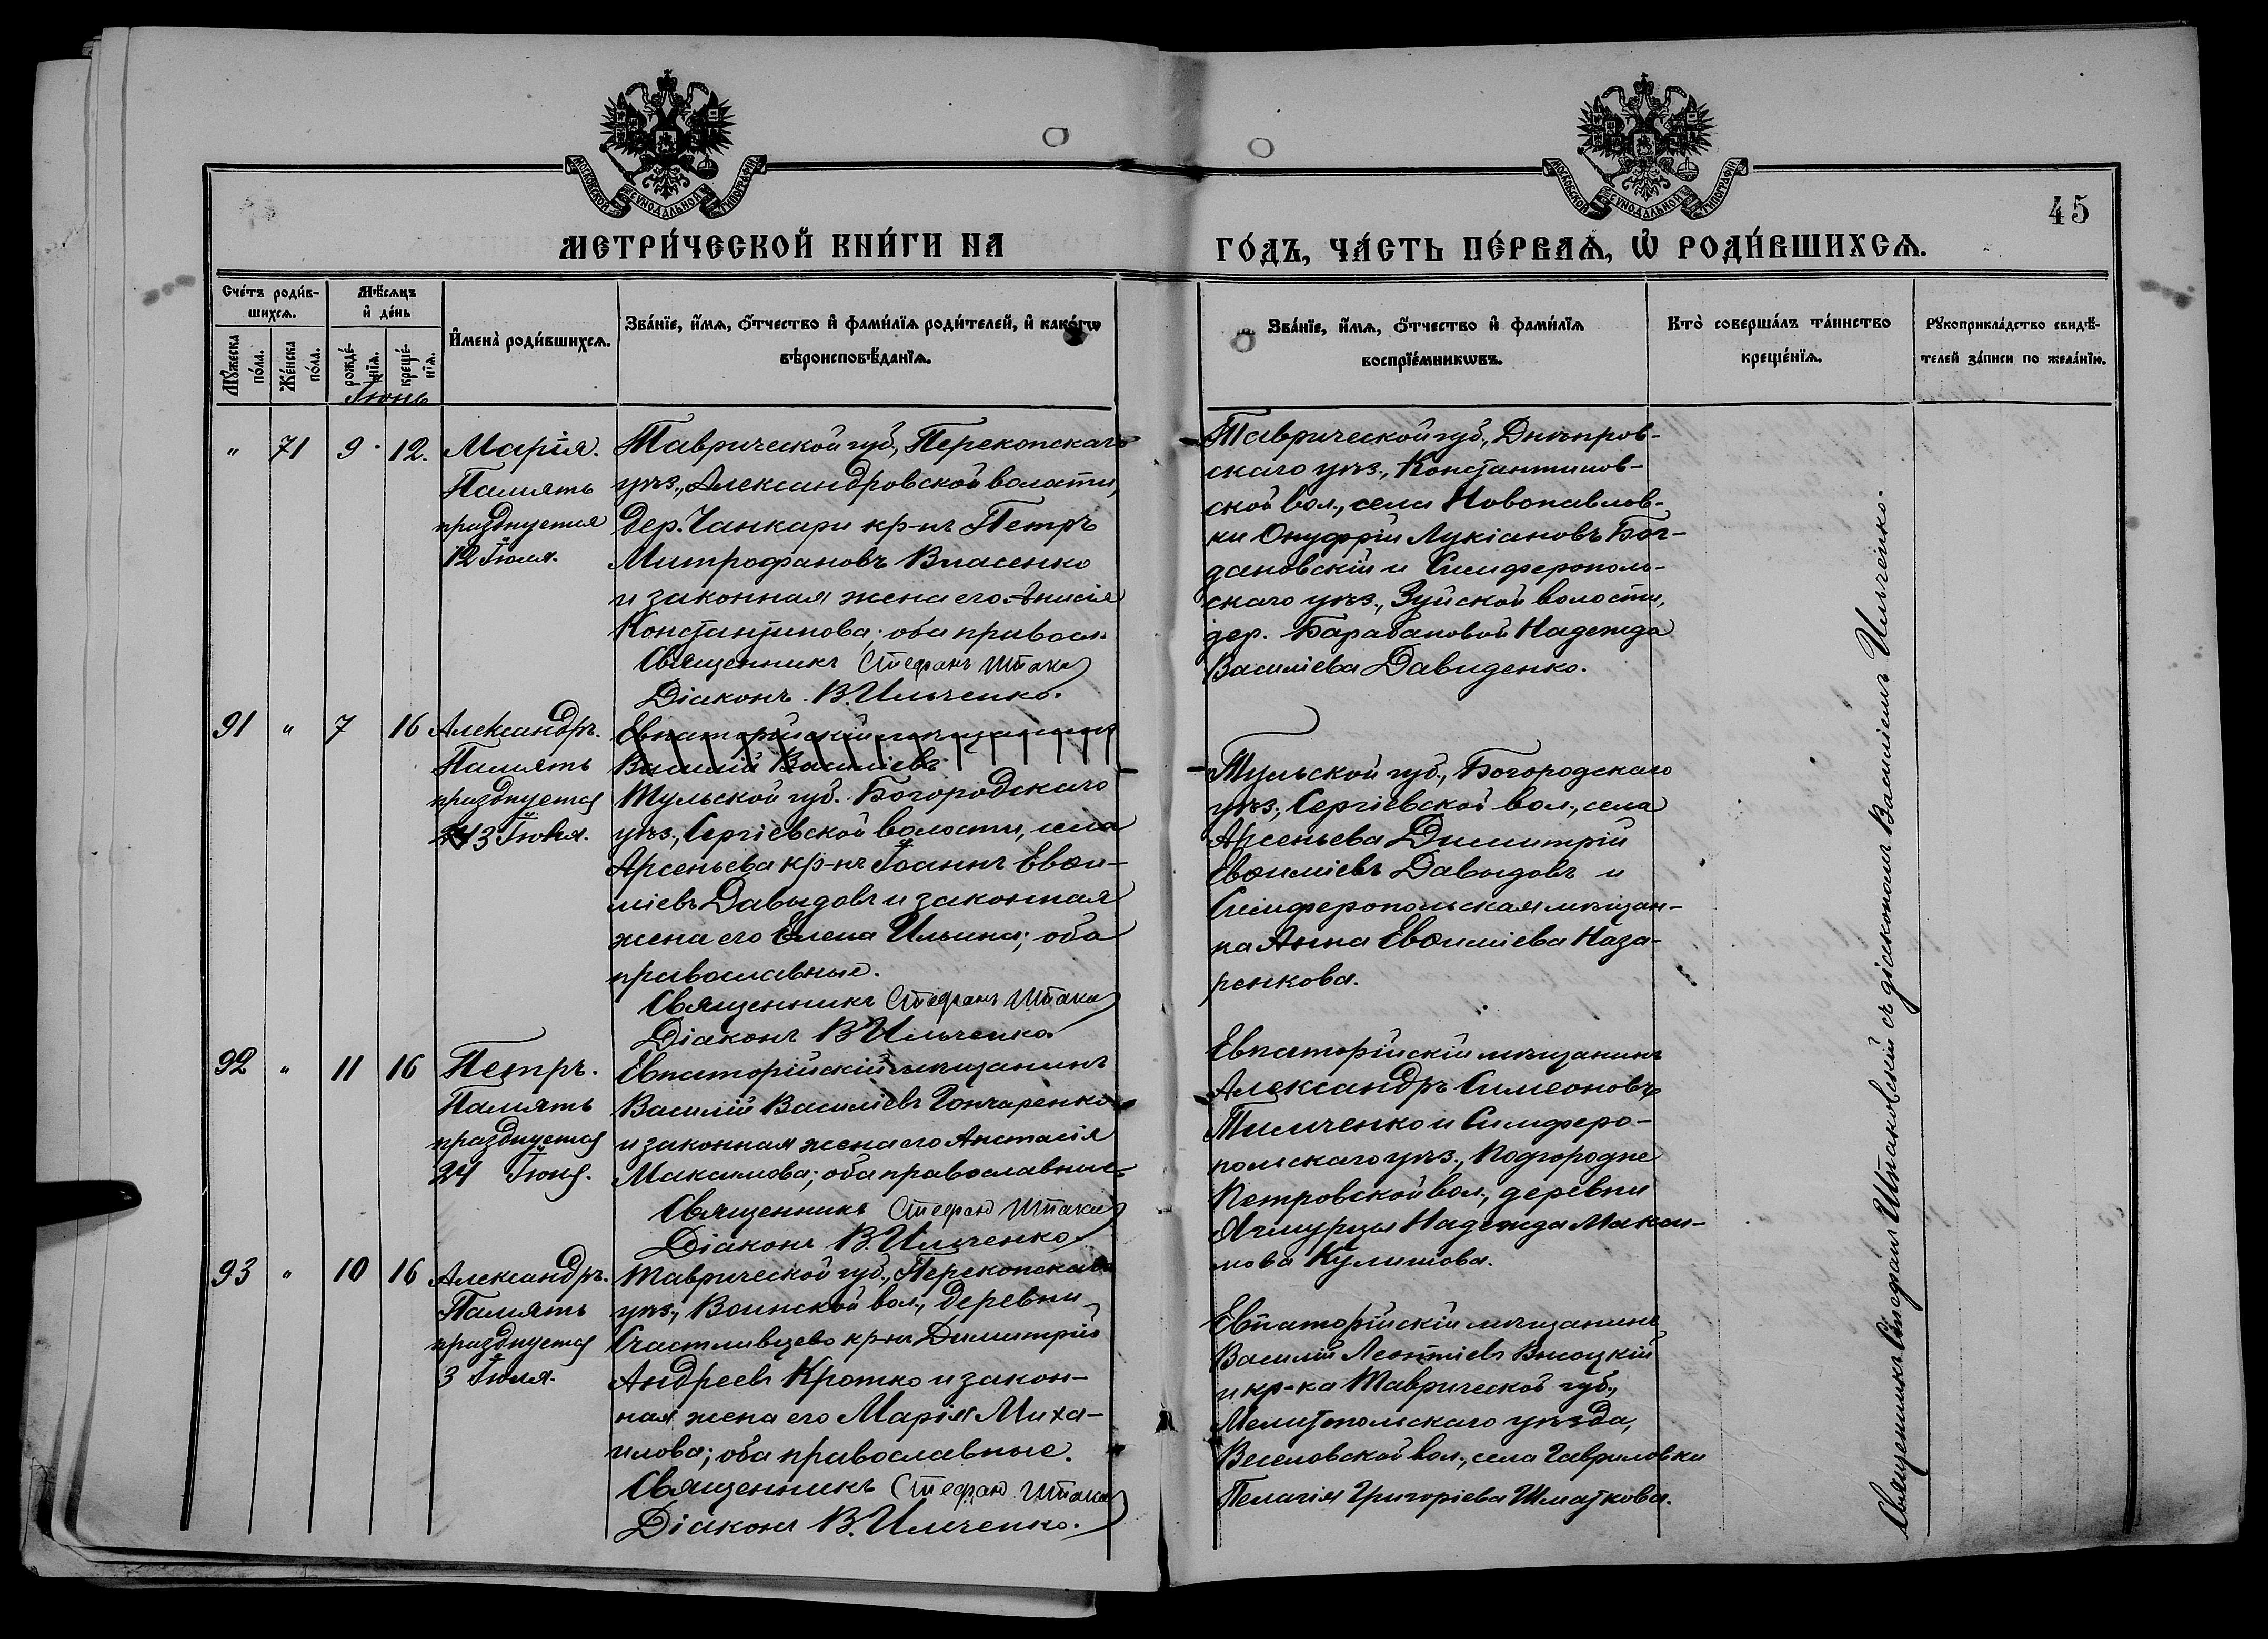 МОСКОВСКОЙ СѴНОДАЛЬНОЙ ТИПОГРАФІИ
МОСКОВСКОЙ СѴНОДАЛЬНОЙ ТИПОГРАФІИ
45
МЕТРИ́ЧЕСКОЙ КНИ́ГИ НА
ГО́ДЪ, ЧА́СТЬ ПЕ́РВАѦ, Ѡ҆ РОДИ́ВШИХСѦ.
Сче́тъ роди́в-
шихсѧ.
Мѣ́сѧцъ
и҆ де́нь
Мꙋ́жеска
по́ла.
Же́нска
по́ла.
рожде́-
нїѧ.
креще́-
нїѧ.
И҆мена̀ роди́вшихсѧ.
Зва́нїе, и҆́мѧ, ѻ҆́тчество и҆ фами́лїѧ роди́телей, и҆ како́гѡ
вѣроисповѣ́данїѧ.
Зва́нїе, и҆́мѧ, ѻ҆́тчество и҆ фами́лїѧ
воспрїе́мникѡвъ.
Кто̀ соверша́лъ та́инство
креще́нїѧ.
Рꙋкоприкла́дство свидѣ́-
телей за́писи по жела́нїю.
Іюнь
" 71 9 12.
Марія.
Память
празднуется
12 Іюля.
Таврической губ., Перекопскаго
уѣз., Александровской волости,
дер. Чанкари кр-нъ Петръ
Митрофановъ Власенко
и законная жена его Анисія
Константинова; оба правосл.
Священникъ Стефанъ Шпака
Діаконъ В. Ильченко.
Таврической губ., Днѣпров-
скаго уѣз., Константинов-
ской вол., села Новопавлов-
ки Онуфрій Лукіановъ Бог-
дановскій и Симферополь-
скаго уѣз., Зуйской волости,
дер. Барабановой Надежда
Василіева Давиденко.
91 " 7 16
Александръ.
Память
празднуется
3 Іюля.
Евпаторійскій мѣщанинъ
Василій Василіевъ
Тульской губ. Богородскаго
уѣз., Сергіевской волости, села
Арсеньева кр-нъ Іоаннъ Евѳи-
міевъ Давыдовъ и законная
жена его Елена Ильина; оба
православные.
Священникъ Стефанъ Шпака
Діаконъ В. Ильченко.
Тульской губ., Богородскаго
уѣз., Сергіевской вол., села
Арсеньева Димитрій
Евѳиміевъ Давыдовъ и
Симферопольская мѣщан-
ка Анна Евѳиміева Наза-
ренкова.
92 " 11 16
Петръ.
Память
празднуется
Іюня.
Евпаторійскій мѣщанинъ
Василій Василіевъ Гончаренко
и законная жена его Анастасія
Максимова; оба православные
Священникъ Стефанъ Шпака
Діаконъ В. Ильченко
Евпаторійскій мѣщанинъ
Александръ Симеоновъ
Тимченко и Симферо-
польскаго уѣз., Подгородне
Петровской вол., деревни
Надежда Макси-
мова Кулишова.
93 " 10 16
Александръ.
Память
празднуется
3 Іюля.
Таврической губ., Перекопскаго
уѣз., Воинской вол., деревни
Счастливцево кр-нъ Димитрій
Андреевъ Кротко и закон-
ная жена его Марія Миха-
илова; оба православные.
Священникъ Стефанъ Шпака
Діаконъ В. Ильченко.
Евпаторійскій мѣщанинъ
Василій Леонтіевъ Высоцкій
и кр-ка Таврической губ.,
Мелитопольскаго уѣзда,
Веселовской вол., села Гавриловки
Пелагія Григоріева Шматкова.
Священникъ Стефанъ Шпаковскій съ діакономъ Василіемъ Ильченко.